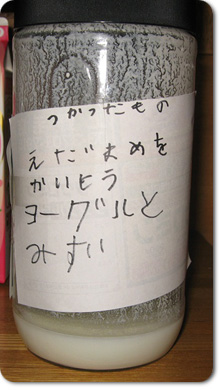 つかったもの
えだまめを
かいとう
ヨーグルと
みずい